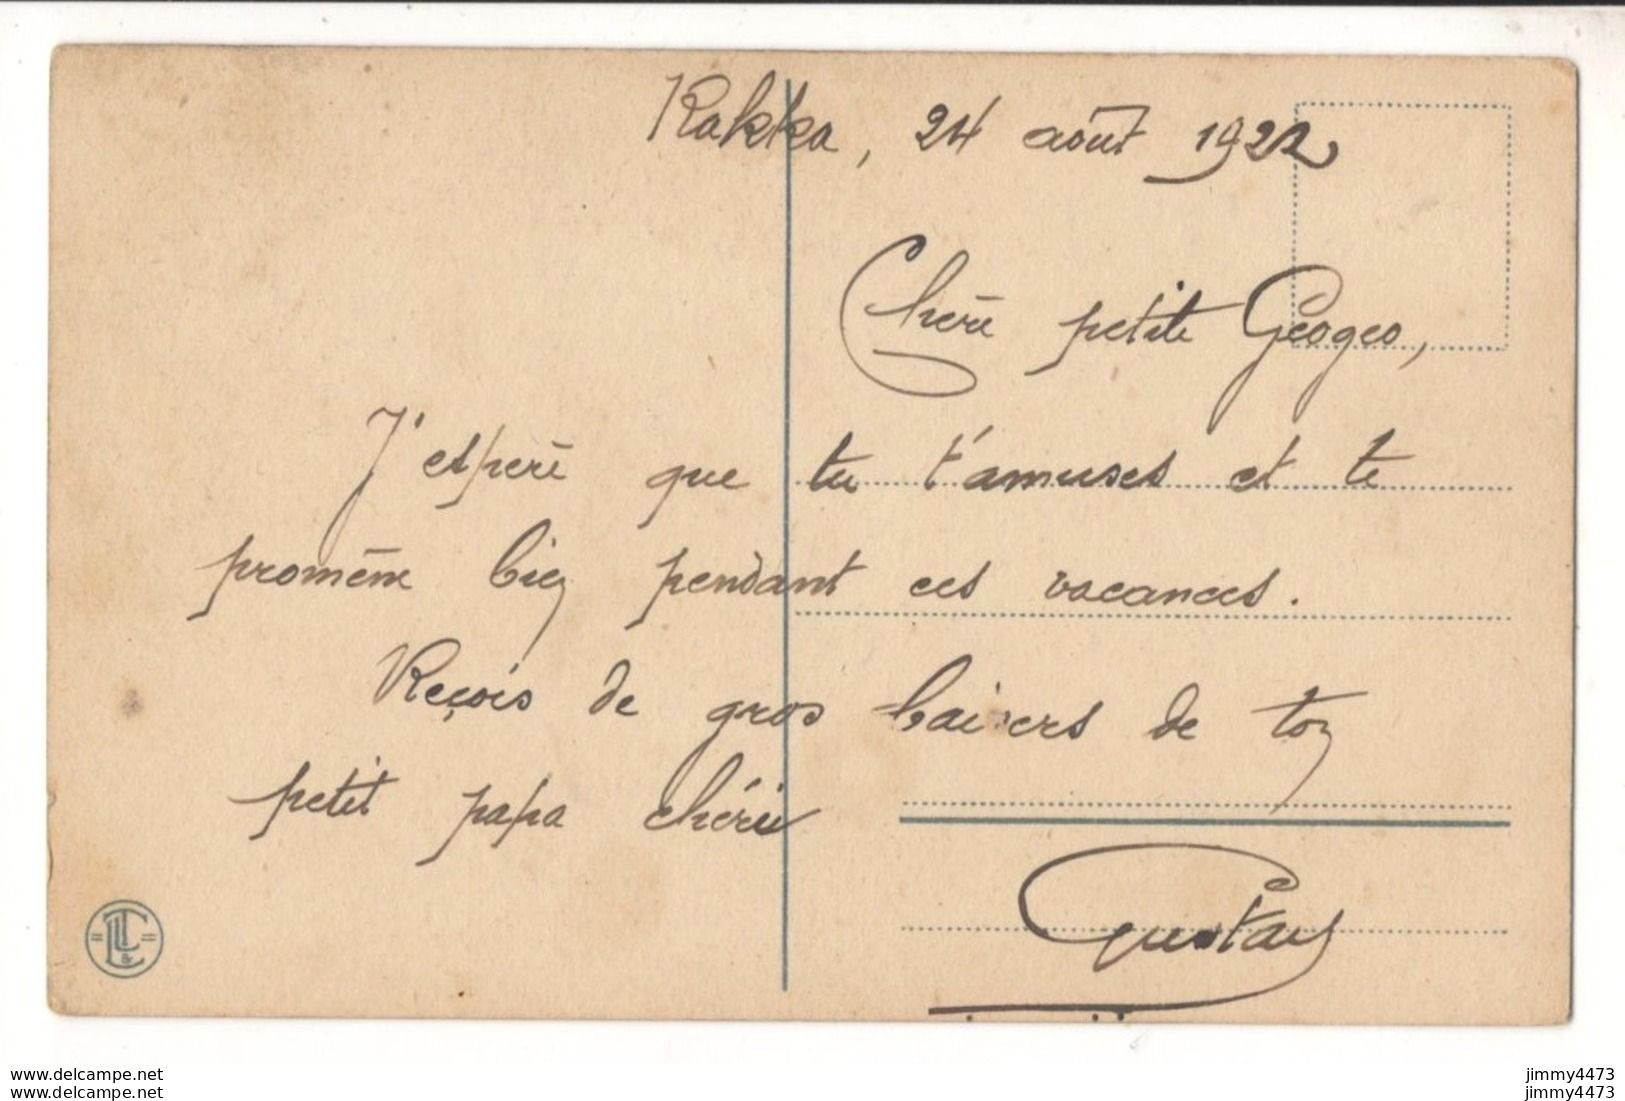 Rakka, 24 août 1922
Chère petite Geogeo,
J'espère que tu t'amuses et te
promène bien pendant ces vacances.
Reçois de gros baisers de ton
petit papa chéri
Gustave
www.delcampe.net
www.delcampe.net
jimmy4473
jimmy4473